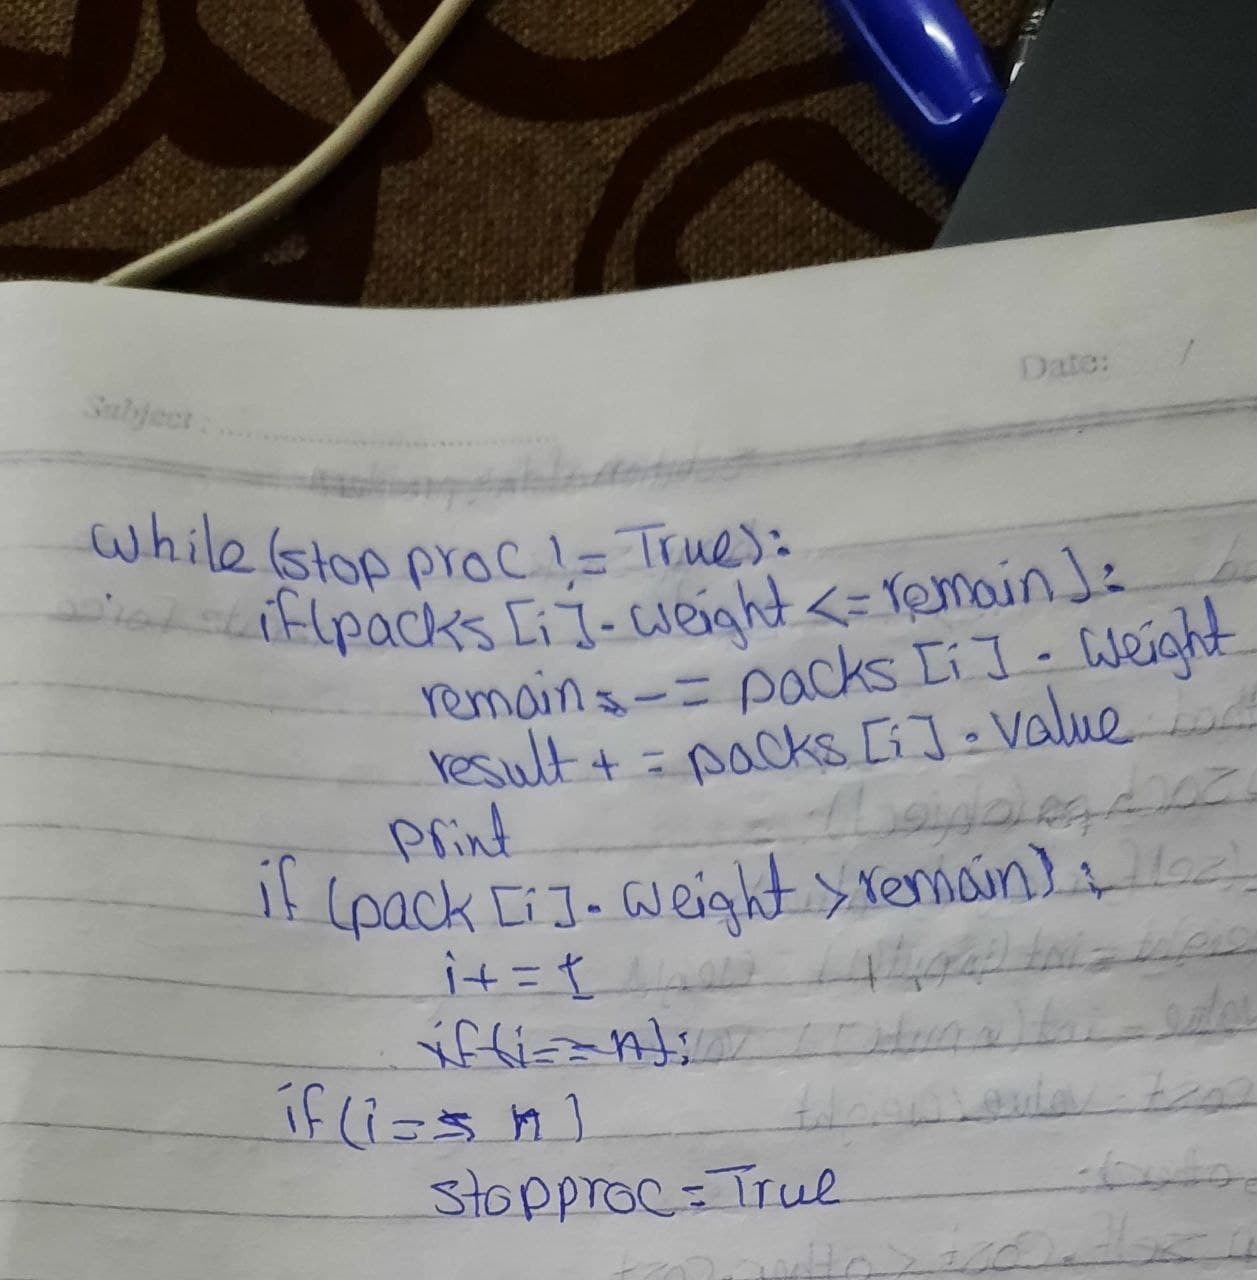 Date: /
Subject:
while (stop proc != True):
if(packs [i]. weight <= remain):
remain -= packs [i]. Weight
result += packs [i]. value
print
if (pack [i]. weight > remain):
i+=1
if(i==n):
if(i== n)
stopproc = True